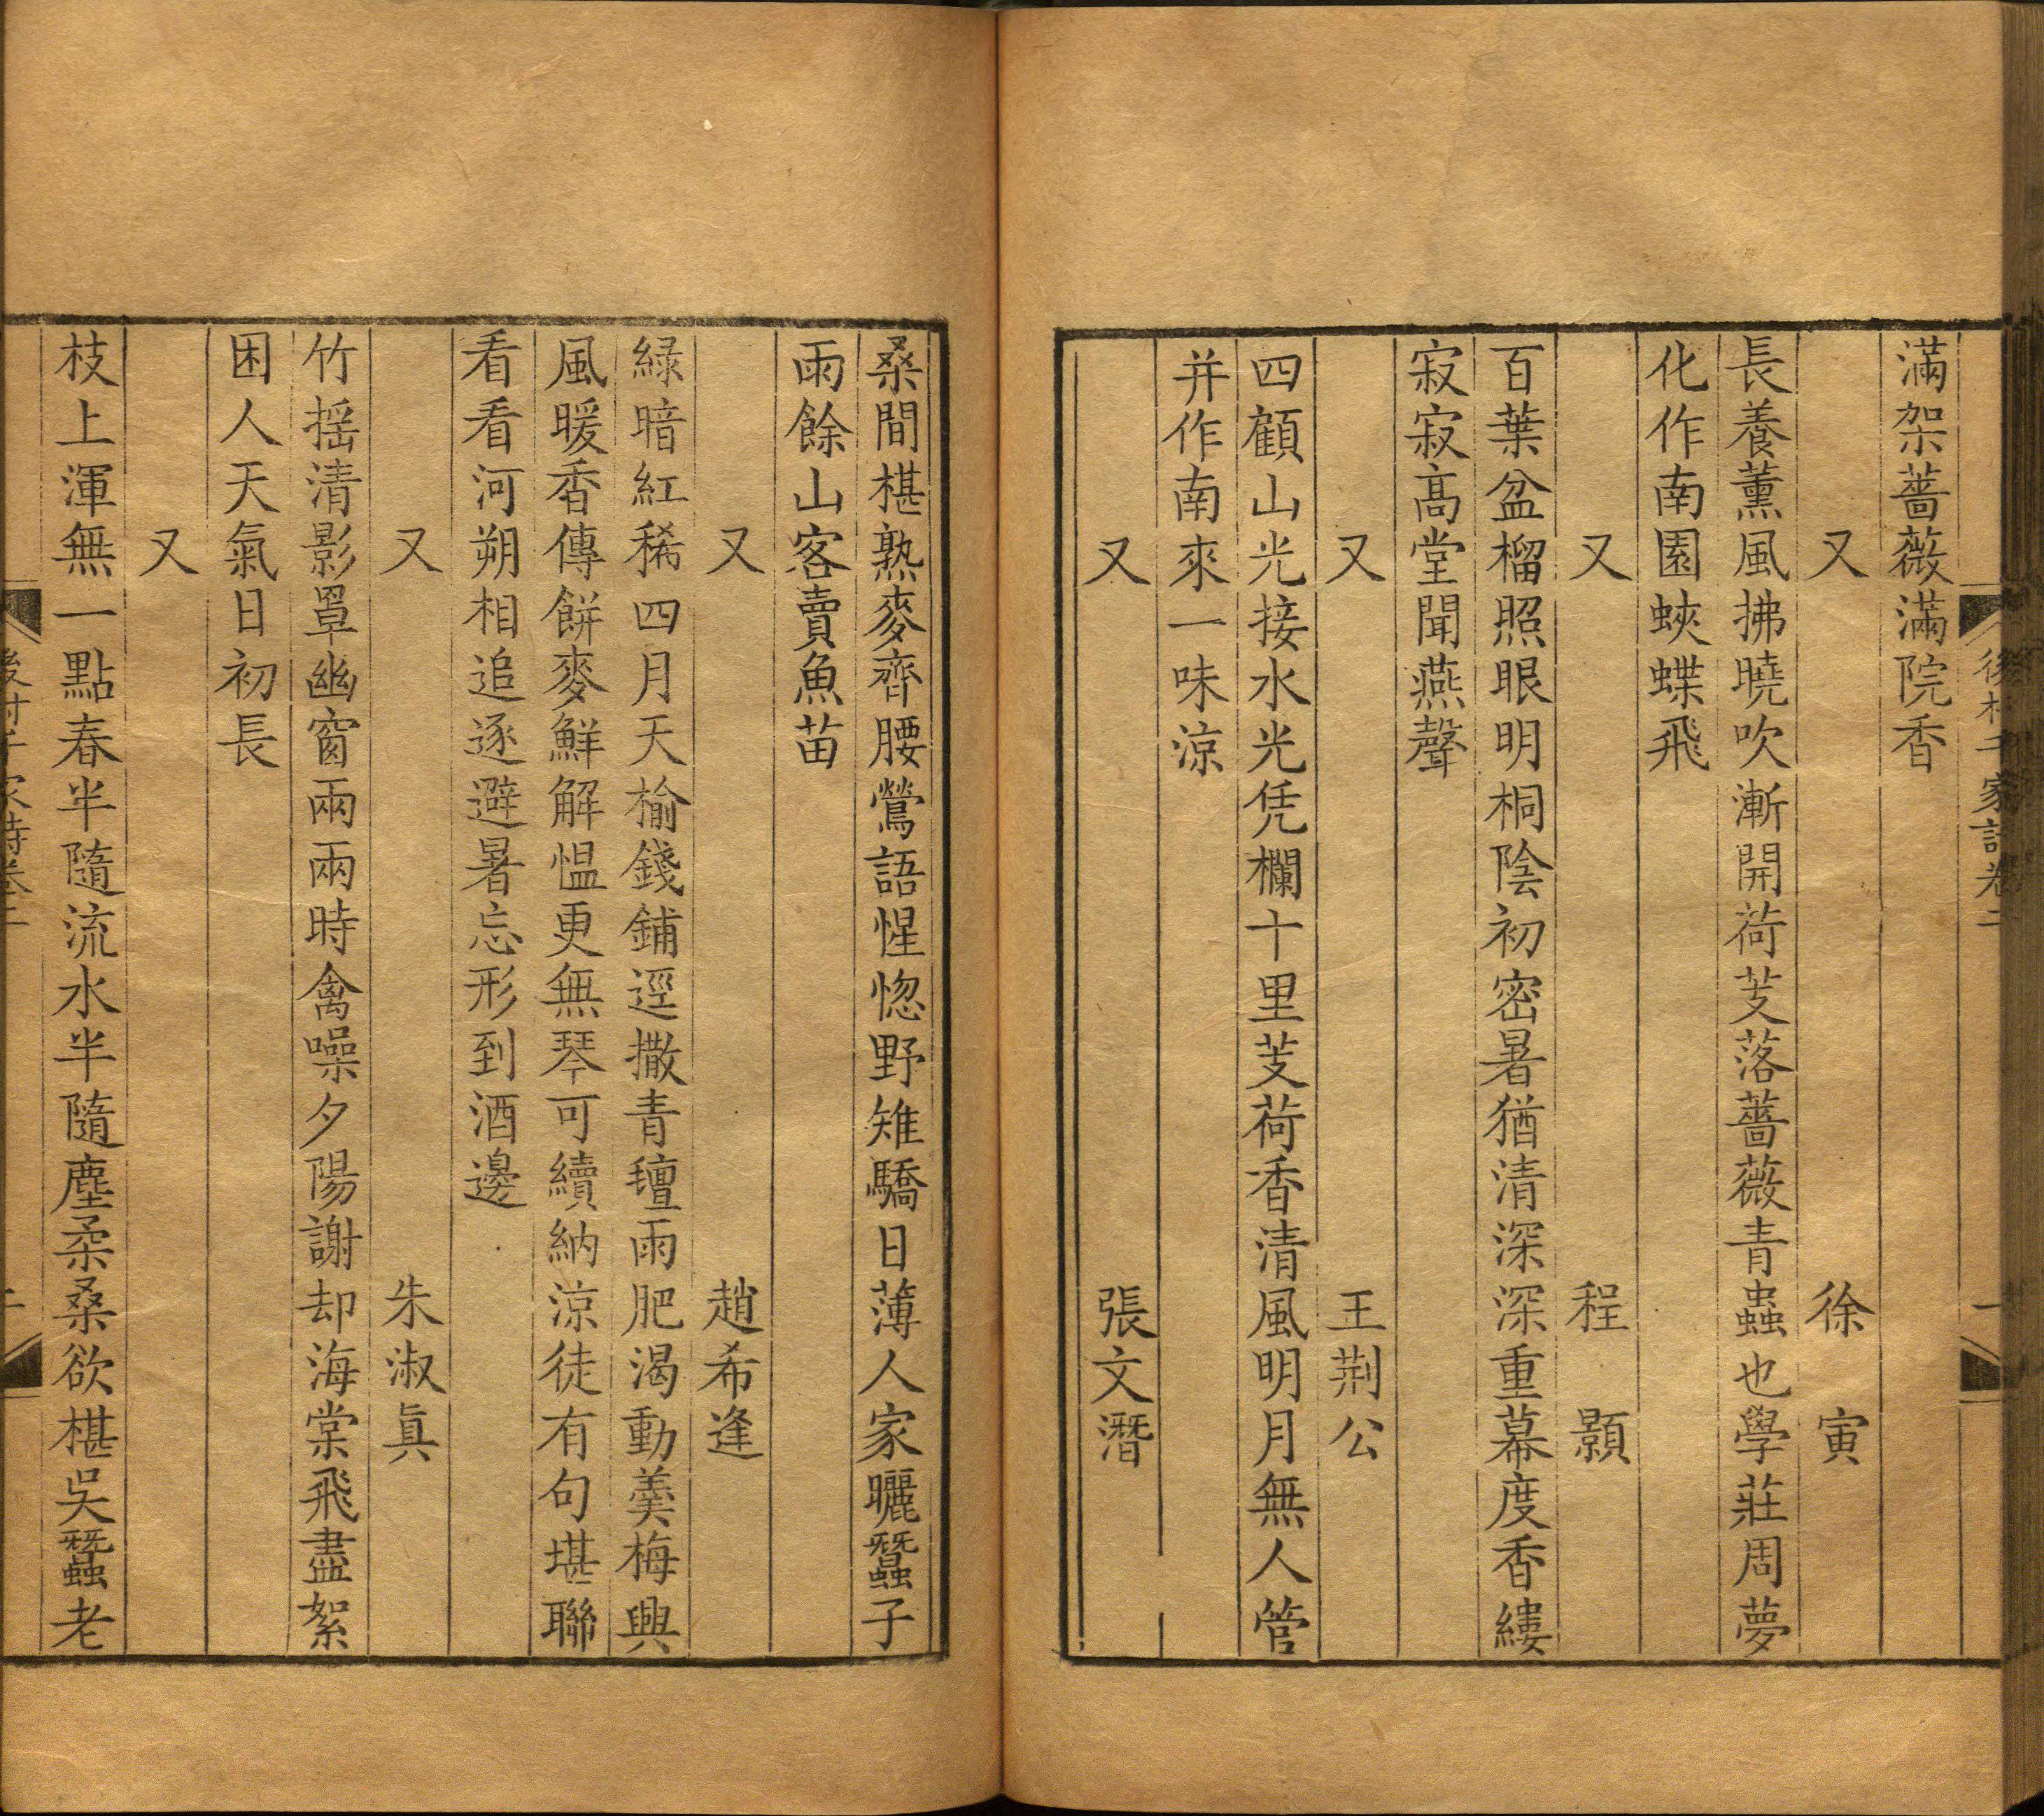 後村千家詩卷二
滿架薔薇滿院香
又 徐寅
長養薰風拂曉吹漸開荷芰落薔薇青蟲也學莊周夢
化作南園蛺蝶飛
又 程顥
百葉盆榴照眼明桐陰初密暑猶清深深重幕度香縷
寂寂髙堂聞燕聲
又 王荆公
四顧山光接水光凭欄十里芰荷香清風明月無人管
并作南來一味涼
又 張文潛
桑間椹熟麥齊腰鶯語惺惚野雉驕日薄人家曬蠶子
雨餘山客賣魚苗
又 趙希逢
緑暗紅稀四月天榆錢鋪逕撒青氊雨肥渴動羹梅興
風暖香傳餅麥鮮解愠更無琴可續納涼徒有句堪聯
看看河朔相追逐避暑忘形到酒邊
又 朱淑眞
竹摇清影罩幽窗兩兩時禽噪夕陽謝却海棠飛盡絮
困人天氣日初長
又
枝上渾無一點春半隨流水半隨塵柔桑欲椹吴蠶老
後村千家詩卷二